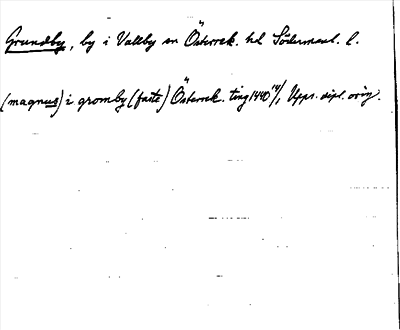 Grundby, by i Vallby sn Österrek. hd Södermanl. l.
(magnus) i gromby (faste) Österrek. ting 1440 14/1 Upps. dipl. orig.